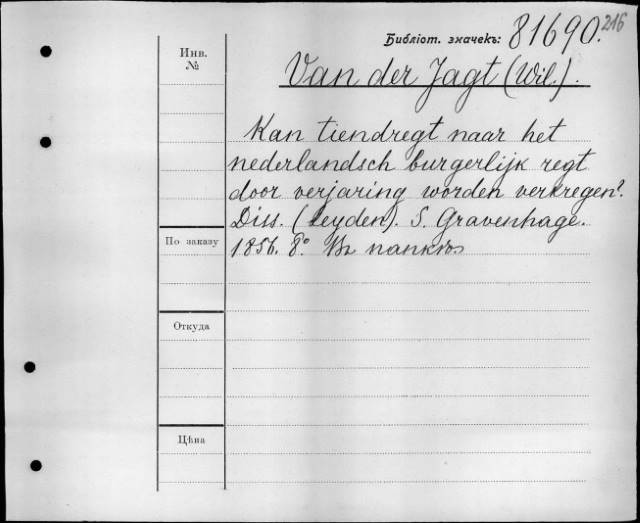 216
Библіот. значекъ: 81690.
Инв.
№
Van der Jagt (Wil.).
Kan tiendregt naar het
nederlandsch burgerlijk regt
door verjaring worden verkregen?
Diss. (Leyden). S. Gravenhage.
По заказу
1856. 8° Въ папкѣ
Откуда
Цѣна